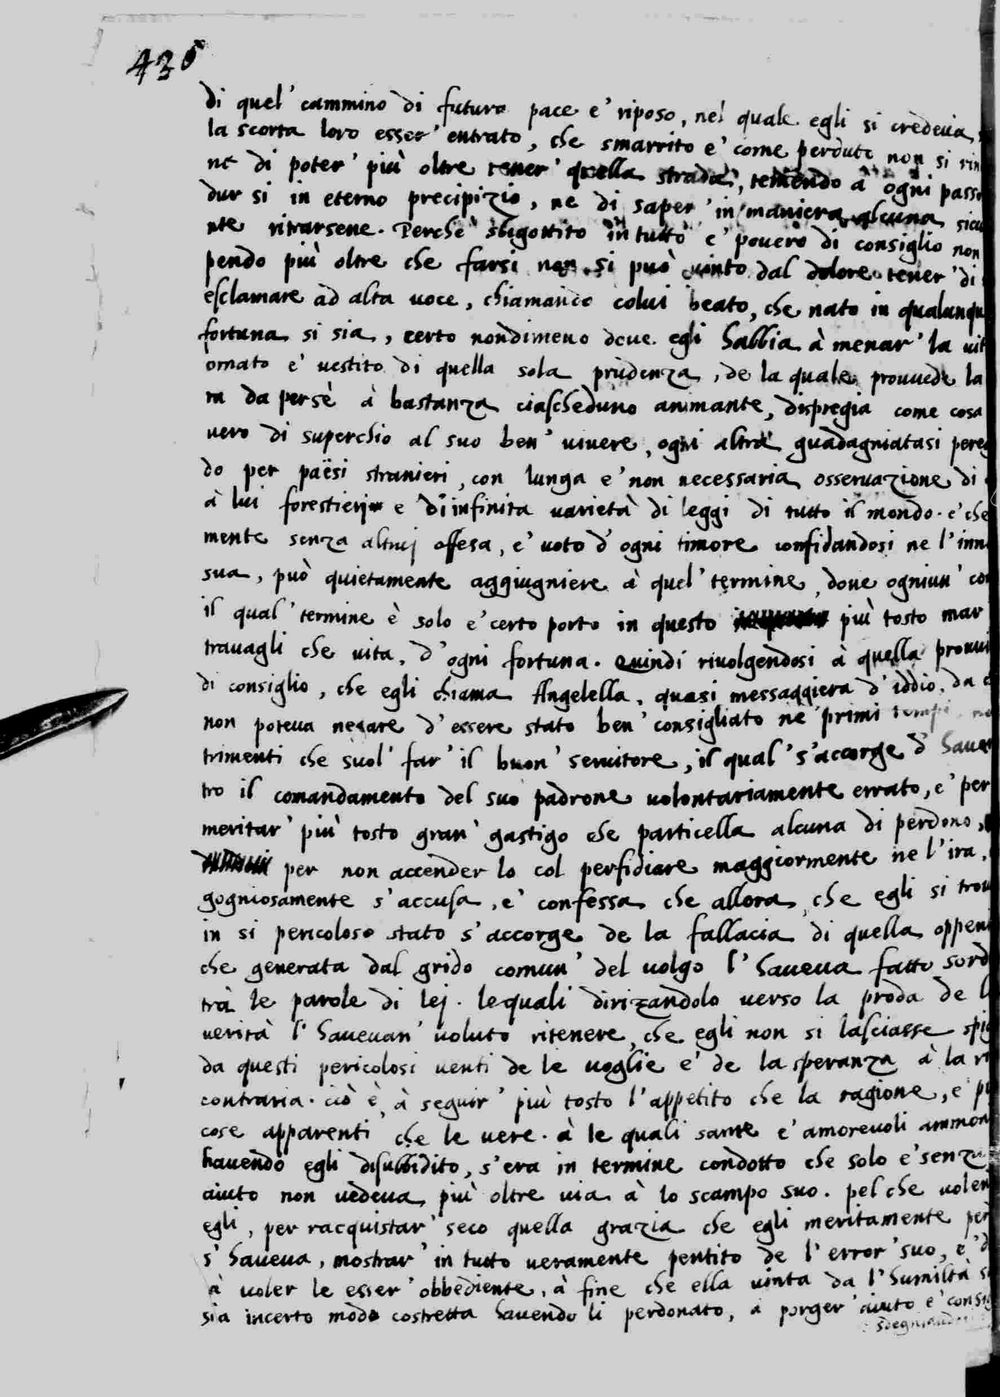 436
di quel' cammino di futura pace e' riposo, nel quale egli si credeua,
la scorta loro esser' entrato, che smarrito e' come perduto non si
ne di poter' più oltre tener' quella strada, temendo à ogni passo
dur si in eterno precipizio, ne di saper' in maniera alcuna
nte ritrarsene. Perche sbigottito in tutto e' pouero di consiglio non
pendo più oltre che farsi non si può uinto dal dolore tener' di
esclamare ad alta uoce, chiamando colui beato, che nato in qualunque
fortuna si sia, certo nondimeno doue egli habbia à menar' la
ornato e' uestito di quella sola prudenza, de la quale prouuede la
ra da persè à bastanza ciascheduno animante, dispregia come cosa
uero di superchio al suo ben' uiuere, ogni altra guadagniatasi
do per paësi stranieri, con lunga e' non necessaria osseruazione di
à lui forestieri e d'infinita uarietà di leggi di tutto il mondo. e' che
mente senza altruj offesa, e' uoto d'ogni timore confidandosi ne l'inn
sua, può quietamente aggiugniere à quel' termine, doue ogniun'
il qual' termine è solo e' certo porto in questo più tosto mar
trauagli che uita, d'ogni fortuna. Quindi riuolgendosi à quella
di consiglio, che egli chiama Angelella, quasi messaggiera d'iddio, da
non poteua negare d'essere stato ben' consigliato ne' primi tempi,
trimenti che suol' far' il buon' seruitore, il qual' s'accorge d'
tro il comandamento del suo padrone uolontariamente errato, e' per
meritar' più tosto gran' gastigo che particella alcuna di perdono,
per non accender lo col perfidiare maggiormente ne l'ira,
gogniosamente s'accusa, e' confessa che allora, che egli si
in si pericoloso stato s'accorge de la fallacia di quella
che generata dal grido comun' del uolgo l'haueua fatto
trà le parole di lej. lequali dirizandolo uerso la proda de
uerità l'haueuan' uoluto ritenere, che egli non si lasciasse
da questi pericolosi uenti de le uoglie e' de la speranza à la
contraria. ciò è, à seguir' più tosto l'appetito che la ragione, e'
cose apparenti che le uere. à le quali sante e' amoreuoli ammon
hauendo egli disubbidito, s'era in termine condotto che solo e' senza
aiuto non uedeua più oltre uia à lo scampo suo. pel che
egli, per racquistar' seco quella grazia che egli meritamente
s'haueua, mostrar' in tutto ueramente pentito de l'error' suo, e'
à uoler le esser' obbediente, à fine che ella uinta da l'humiltà
sia incerto modo costretta hauendo li perdonato, à porger' aiuto e'
sdegniando